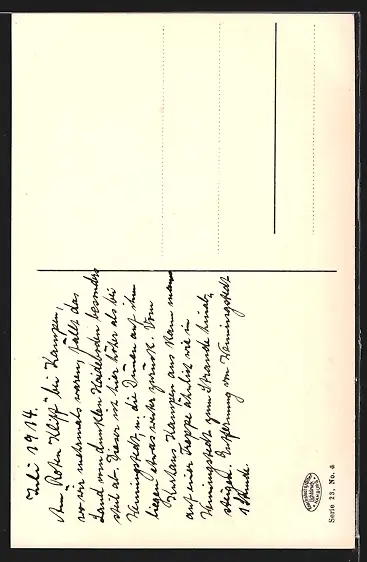 Juli 1914.
Am "Roten Kliff" bei Kampen,
wo wir mehrmals waren, fällt das
Land vom dunklen Heideboden besonders
steil ab. Dieser ist hier höher als bei
Wenningstedt u. die Dünen auf ihm
liegen etwas weiter zurück. Vom
Kurhaus Kampen aus kann man
auf einer Treppe ähnlich wie in
Wenningstedt zum Strande hinab
steigen. Entfernung von Wenningstedt
1 Stunde.
Serie 23. No.